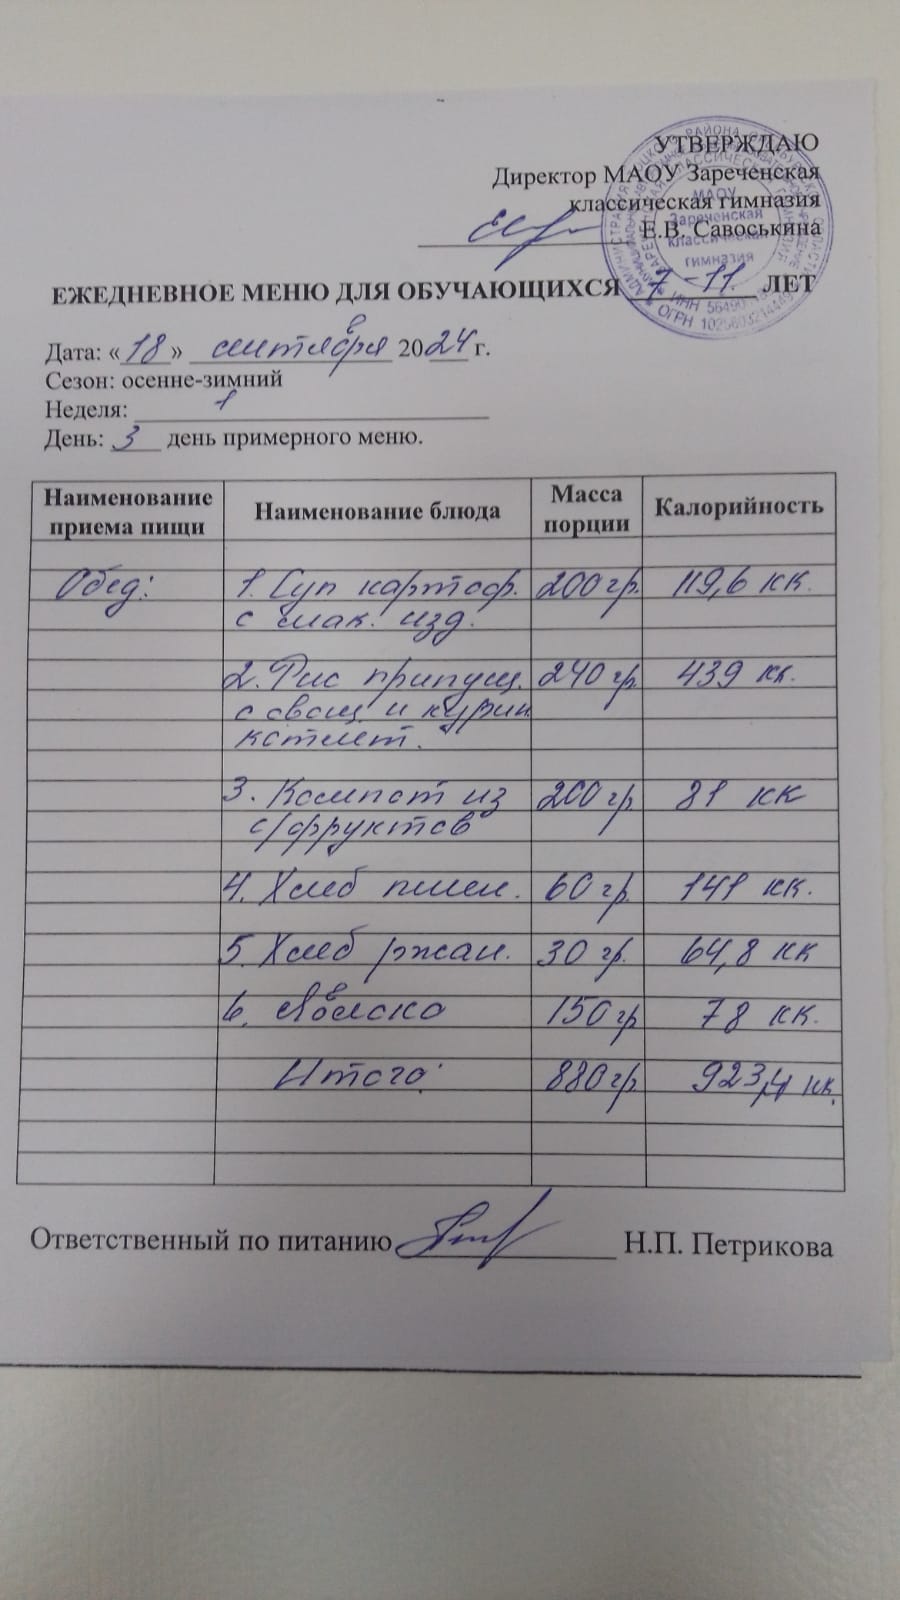 УТВЕРЖДАЮ
Директор МАОУ Зареченская
классическая гимназия
Е.В. Савоськина
МАОУ
Зареченская
классическая
гимназия
ЕЖЕДНЕВНОЕ МЕНЮ ДЛЯ ОБУЧАЮЩИХСЯ 7-11 ЛЕТ
Дата: «18» сентября 2024 г.
Сезон: осенне-зимний
Неделя: 1
День: 3 день примерного меню.
Наименование приема пищи Наименование блюда Масса порции Калорийность
Обед: 1. Суп картоф. 200 гр. 119,6 кк.
с мак. изд.
2. Рис припущ. 240 гр. 439 кк.
с овощ. и курин.
котлет.
3. Компот из 200 гр. 81 кк
с/фруктов
4. Хлеб пшен. 60 гр. 141 кк.
5. Хлеб ржан. 30 гр. 64,8 кк
6. Яблоко 150 гр 78 кк.
Итого: 880 гр. 923,4 кк.
Ответственный по питанию Н.П. Петрикова